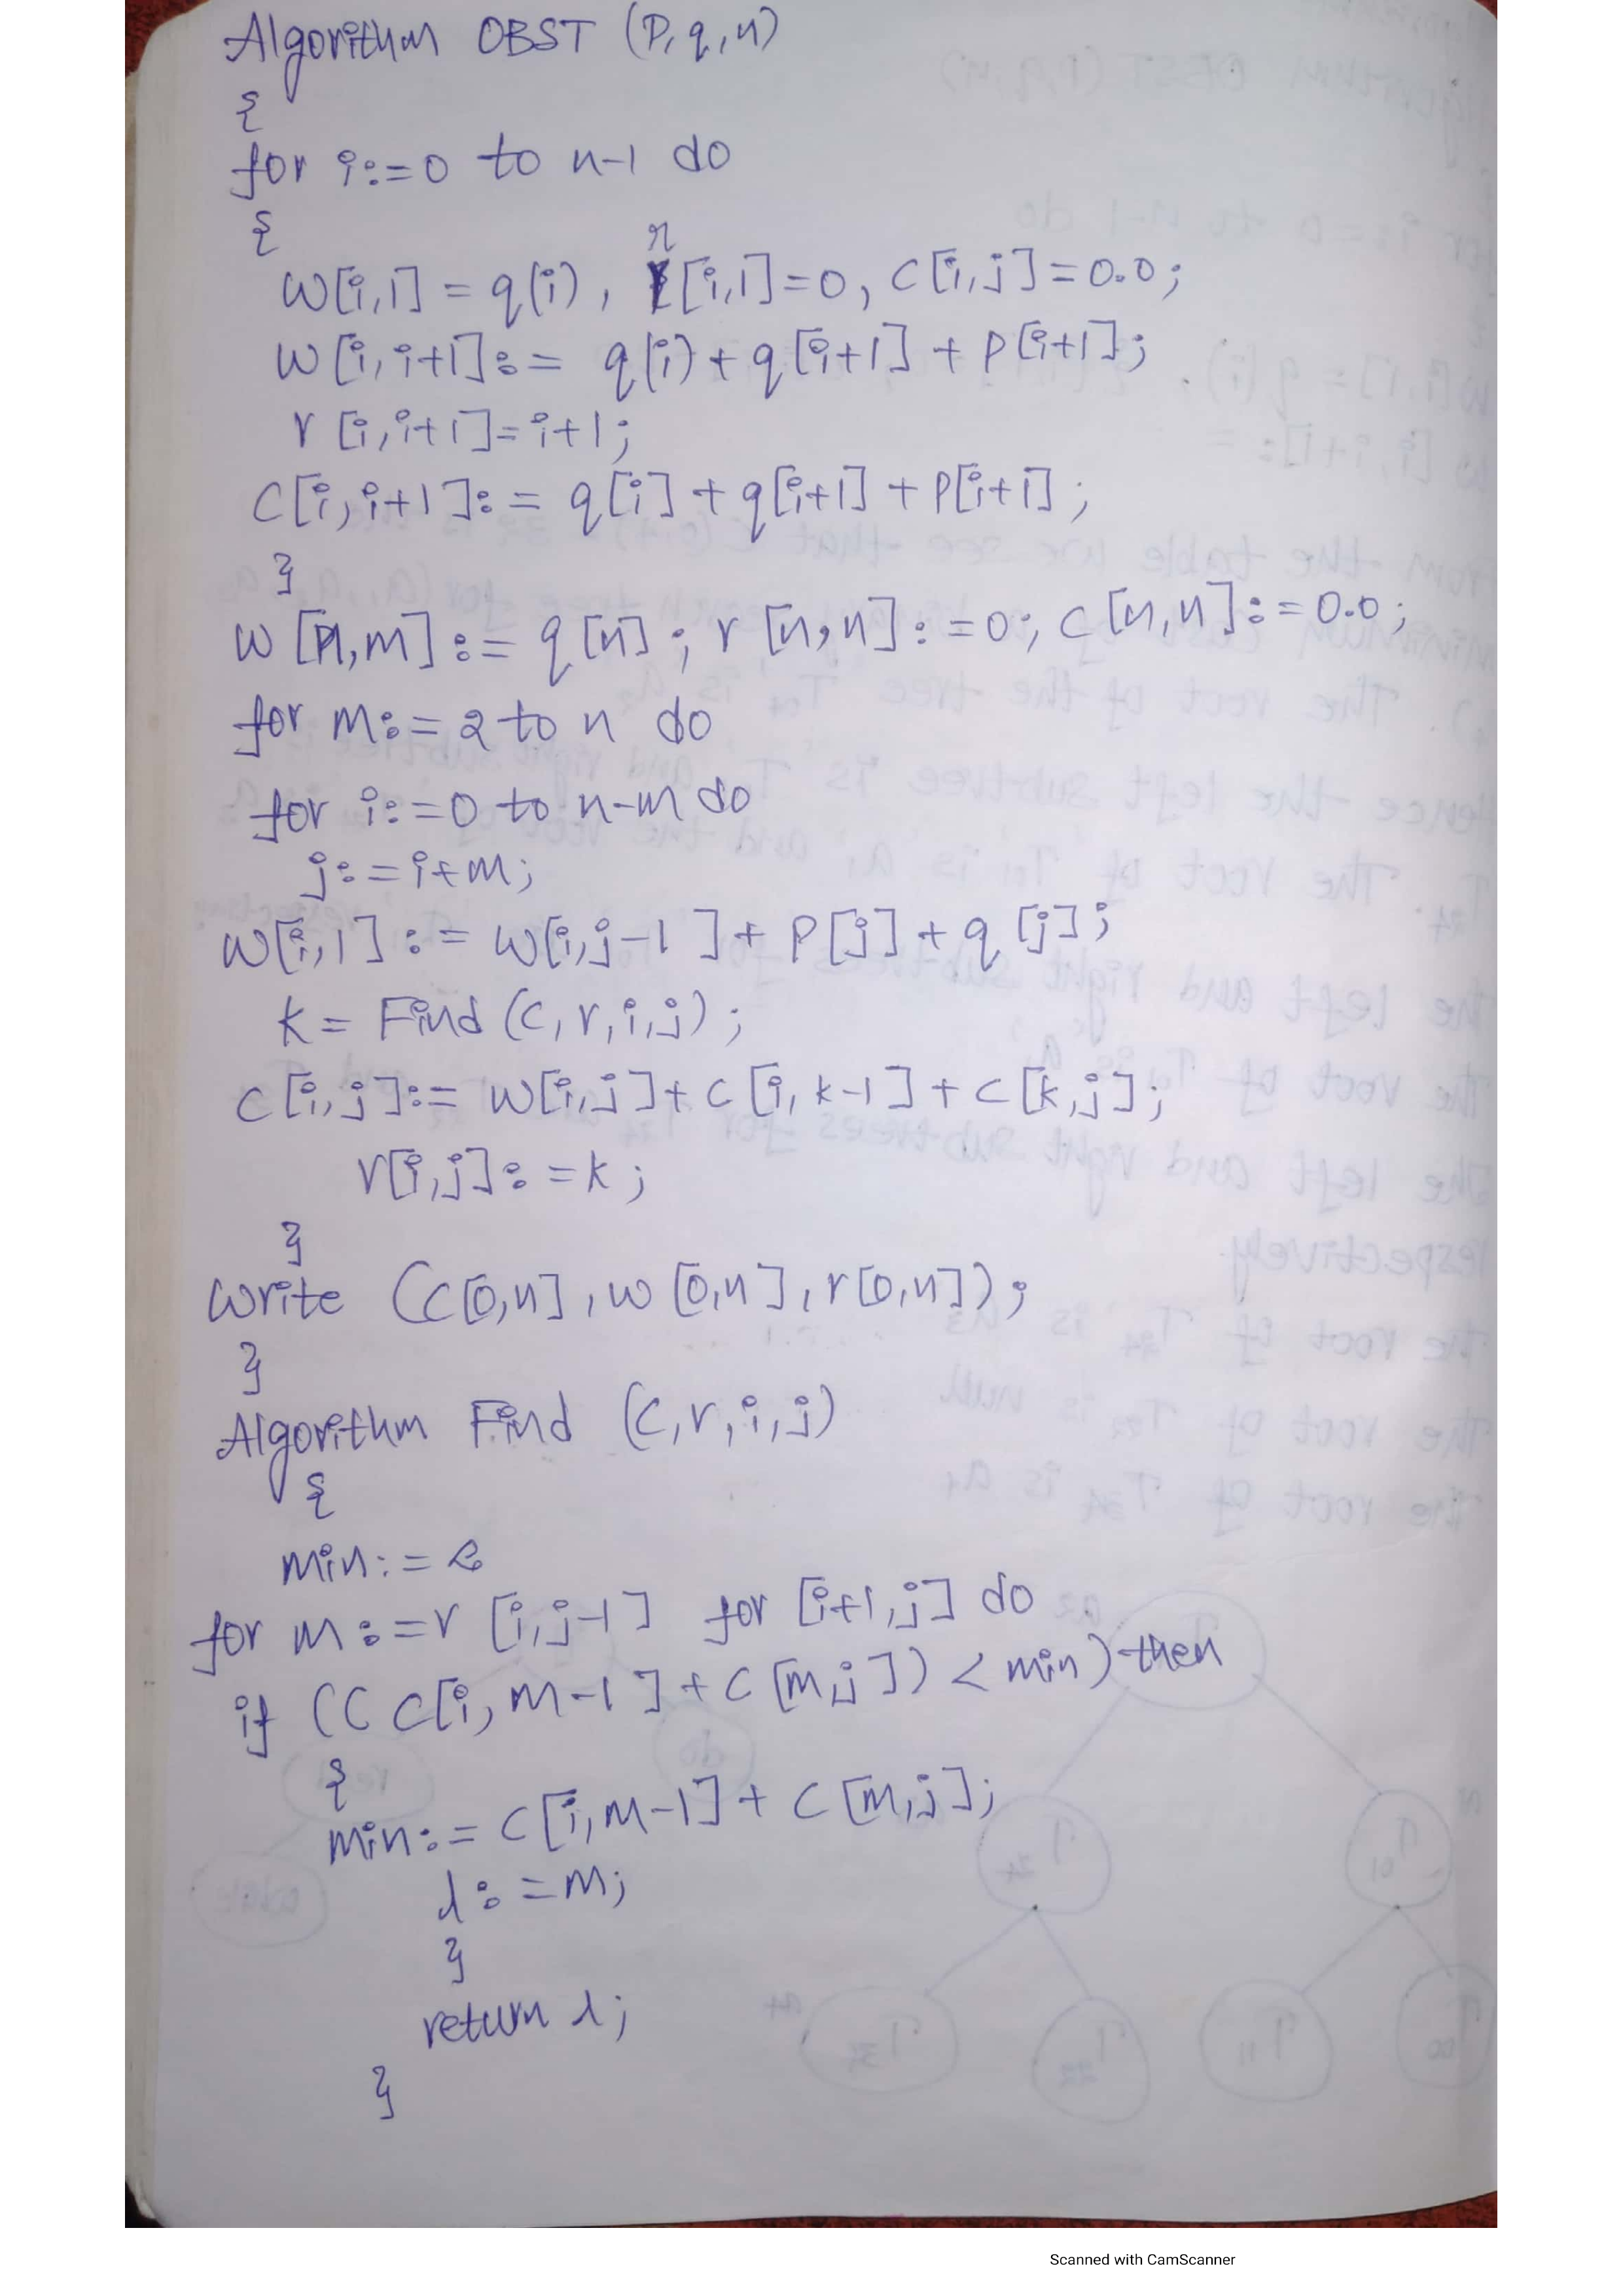 Algorithm OBST (P, q, n)
{
for i:=0 to n-1 do
{
w[i,1] = q(i), r[i,1]=0, c[i,j]=0.0;
w[i,i+1]:= q(i)+q[i+1] + p[i+1];
r[i,i+1]=i+1;
c[i,i+1]:= q[i]+q[i+1]+p[i+1];
}
w[n,m]:= q[n]; r[n,n]:=0; c[n,n]:=0.0;
for m:=2 to n do
for i:=0 to n-m do
j:=i+m;
w[i,1]:= w[i,j-1]+p[j]+q[j];
k= Find (c,r,i,j);
c[i,j]:= w[i,j]+c[i,k-1]+c[k,j];
r[i,j]:=k;
}
write (c[0,n], w[0,n], r[0,n]);
}
Algorithm Find (c,r,i,j)
{
min:=
for m:=r [i,j-1] for [i+1,j] do
if (( c[i,m-1]+c[m,j]) < min) then
{
min:= c[i,m-1]+ c[m,j];
l:=m;
}
return l;
}
Scanned with CamScanner